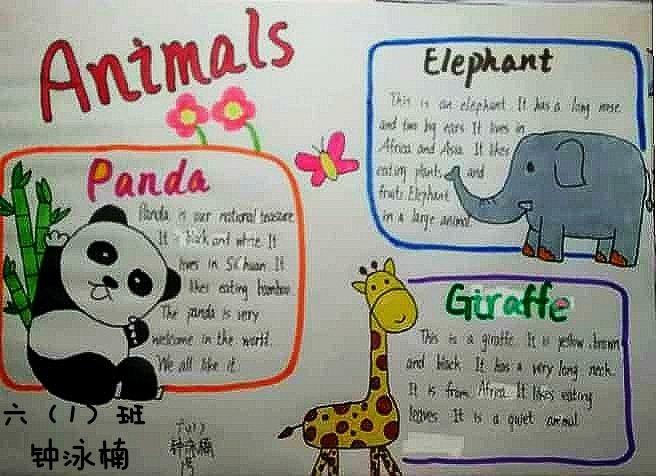 Animals
Panda
Panda is our national treasure
It is black and white. It
lives in SiChuan. It
likes eating bamboo.
The panda is very
welcome in the world.
We all like it.
Elephant
This is an elephant. It has a long nose
and two big ears. It lives in
Africa and Asia. It likes
eating plants and
fruits. Elephant
is a large animal.
Giraffe
This is a giraffe. It is yellow, brown
and black. It has a very long neck.
It is from Africa. It likes eating
leaves. It is a quiet animal.
六(1)
钟泳楠
六(1)班
钟泳楠